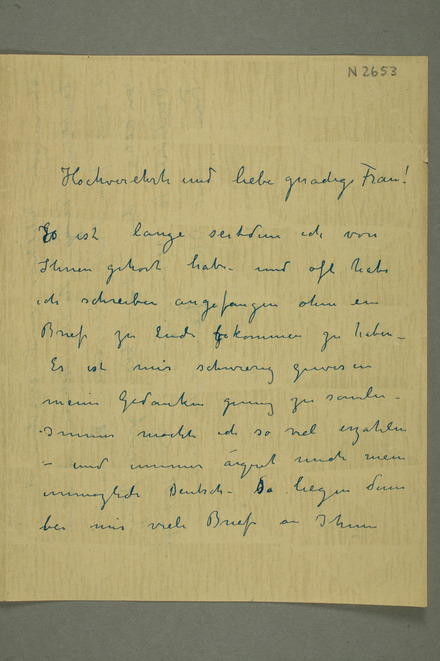 N 2653
Hochverehrte und liebe gnadige Frau!
Es ist lange seitdem ich von
Ihnen gehort habe - und oft habe
ich schreiben angefangen ohne ein
Brief zu Ende bekommen zu haben -
Es ist mir schwierig gewesen
meine Gedanken genug zu samlen -
Immer mochte ich so viel erzahlen
- und immer ärgert mich mein
unmoglich Deutsch - Da liegen dann
bei mir viele Briefe an Ihnen